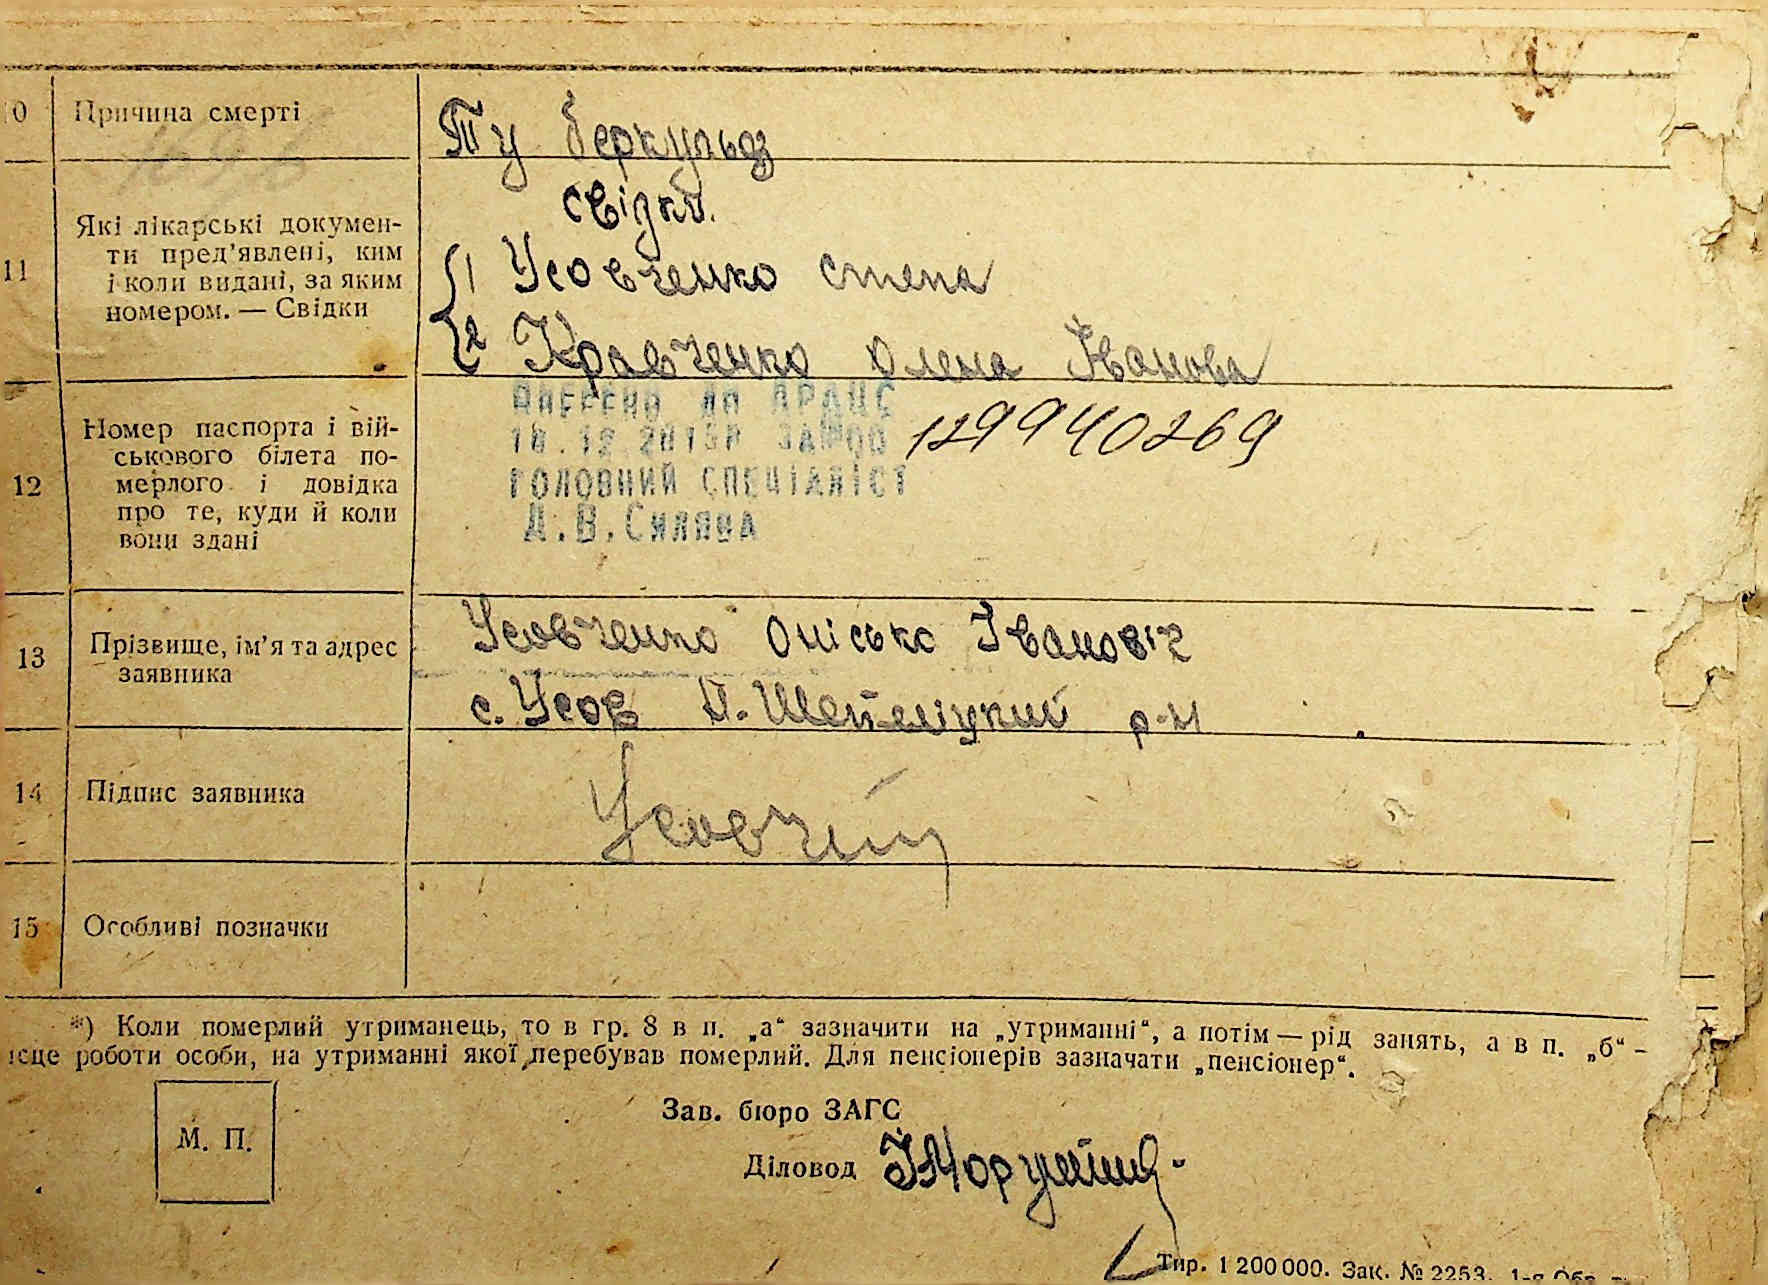 10 Причина смерті
Ту беркульоз
11 Які лікарські докумен-
ти пред’явлені, ким
і коли видані, за яким
номером. — Свідки
свідки.
1 Усовченко степа
2 Кравченко Олена Іванова
12 Номер паспорта і вій-
ськового білета по-
мерлого і довідка
про те, куди й коли
вони здані
Внесено до ДРАЦС
129940269
головний спеціаліст
13 Прізвище, ім’я та адрес
заявника
Усовченко Оніська Івановіч
с. Усов П. Шепеліцкий р-н
14 Підпис заявника
15 Особливі позначки
*) Коли померлий утриманець, то в гр. 8 в п. „а“ зазначити на „утриманні“, а потім — рід занять, а в п. „б“ -
ісце роботи особи, на утриманні якої перебував померлий. Для пенсіонерів зазначати „пенсіонер“.
М. П.
Зав. бюро ЗАГС
Діловод
Тир. 1 200 000. Зак. № 2253.